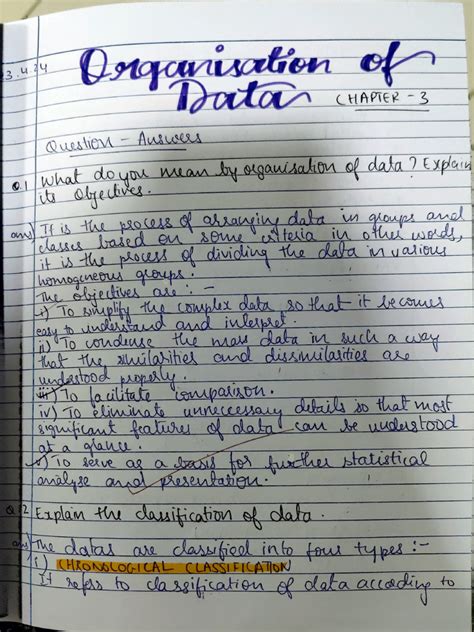 23.4.24
Organisation of
Data
CHAPTER - 3
Question - Answers
Q.1 What do you mean by organisation of data? Explain
its Objectives.
ans) It is the process of arranging data in groups and
classes based on some criteria in other words,
it is the process of dividing the data in various
homogneous groups.
The objectives are :-
i) To simplify the complex data so that it becomes
easy to understand and interpret.
ii) To condense the mass data in such a way
that the similarities and dissimilarities are
understood properly.
iii) To facilitate comparison.
iv) To eliminate unneccessary details so that most
significant features of data can be understood
at a glance.
v) To serve as a basis for further statistical
analyse and presentation.
Q.2 Explain the classification of data.
ans) The datas are classified into four types :-
(i) CHRONOLOGICAL CLASSIFICATION
It refers to classification of data according to